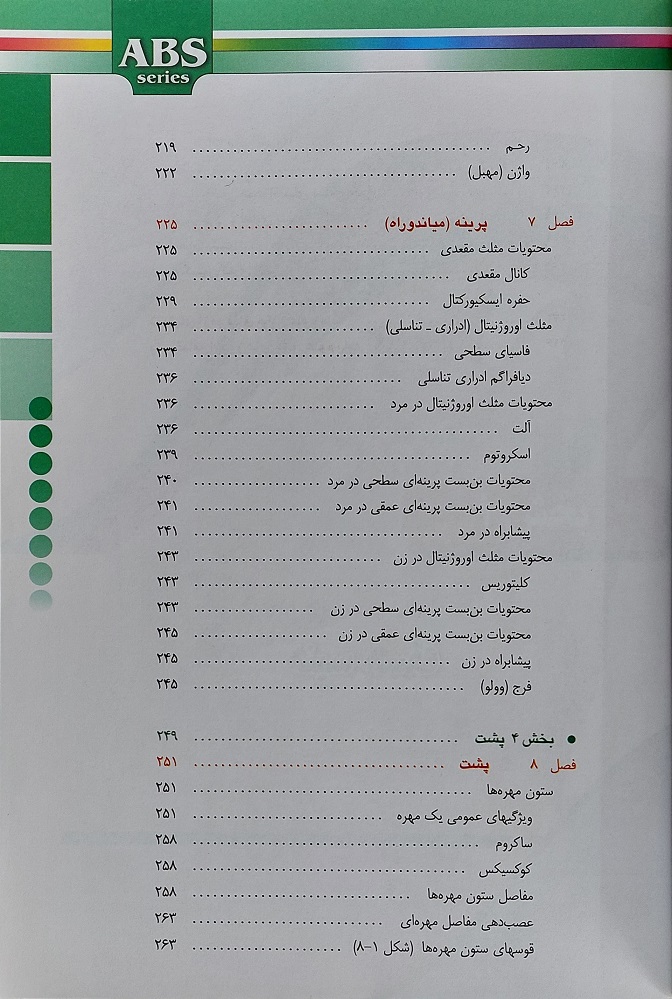 ABS
series
رحم ۲۱۹
واژن (مهبل) ۲۲۲
فصل ۷ پرینه (میاندوراه) ۲۲۵
محتویات مثلث مقعدی ۲۲۵
کانال مقعدی ۲۲۵
حفره ایسکیورکتال ۲۲۹
مثلث اوروژنیتال (ادراری ـ تناسلی) ۲۳۴
فاسیای سطحی ۲۳۴
دیافراگم ادراری تناسلی ۲۳۶
محتویات مثلث اوروژنیتال در مرد ۲۳۶
آلت ۲۳۶
اسکروتوم ۲۳۹
محتویات بن‌بست پرینه‌ای سطحی در مرد ۲۴۰
محتویات بن‌بست پرینه‌ای عمقی در مرد ۲۴۱
پیشابراه در مرد ۲۴۱
محتویات مثلث اوروژنیتال در زن ۲۴۳
کلیتوریس ۲۴۳
محتویات بن‌بست پرینه‌ای سطحی در زن ۲۴۳
محتویات بن‌بست پرینه‌ای عمقی در زن ۲۴۵
پیشابراه در زن ۲۴۵
فرج (وولو) ۲۴۵
● بخش ۴ پشت ۲۴۹
فصل ۸ پشت ۲۵۱
ستون مهره‌ها ۲۵۱
ویژگیهای عمومی یک مهره ۲۵۱
ساکروم ۲۵۸
کوکسیکس ۲۵۸
مفاصل ستون مهره‌ها ۲۵۸
عصب‌دهی مفاصل مهره‌ای ۲۶۳
قوسهای ستون مهره‌ها (شکل ۱-۸) ۲۶۳